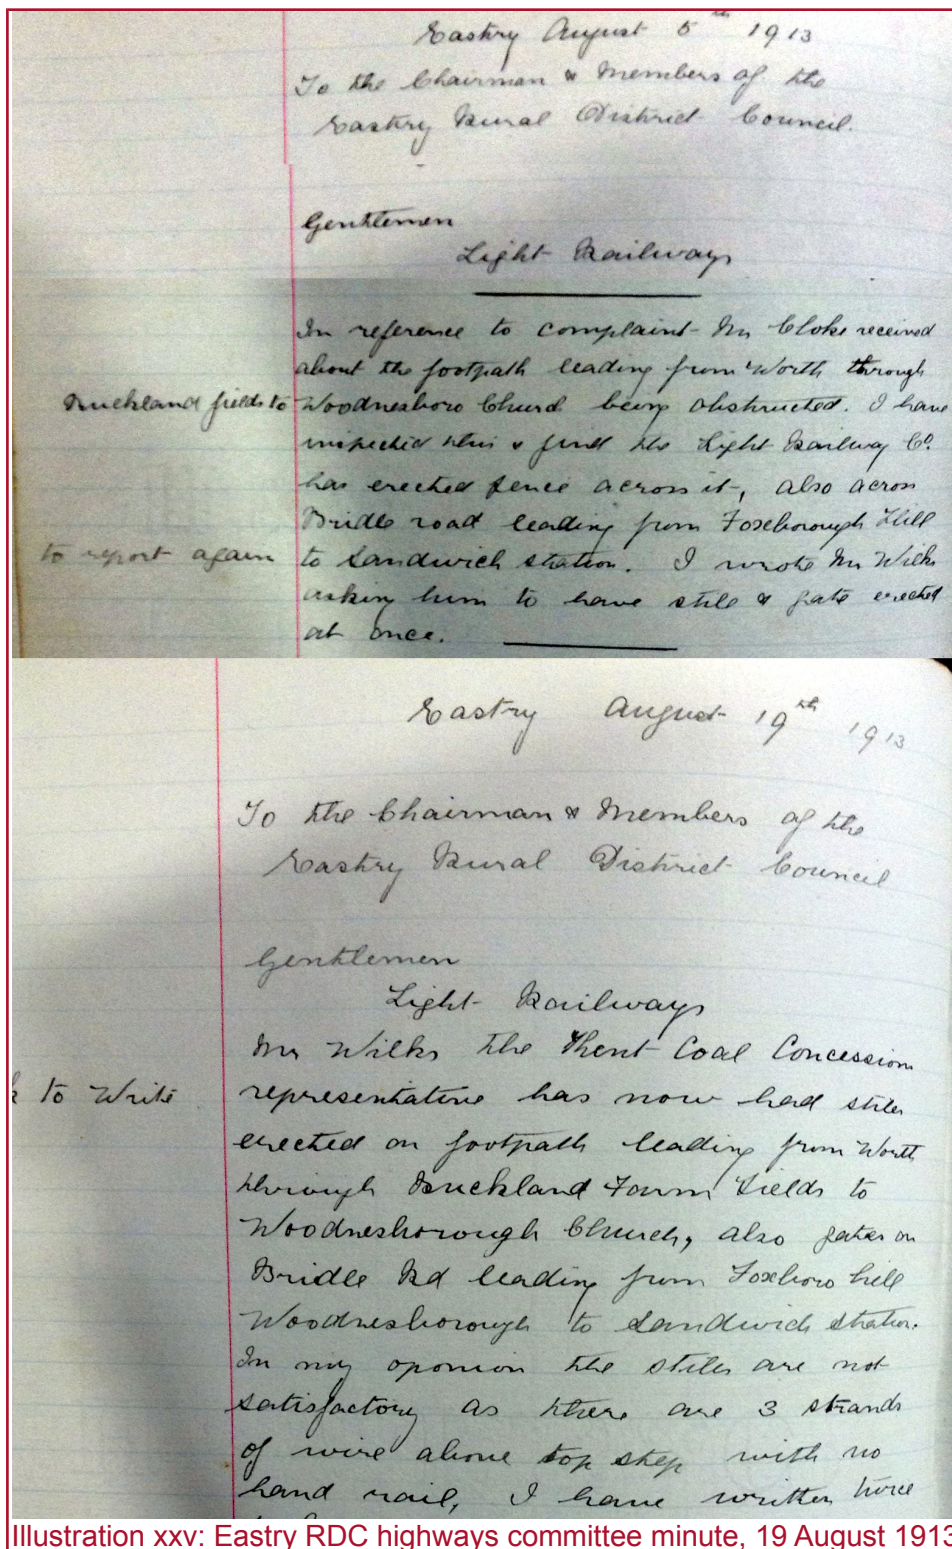 Eastry August 5th 1913
To the Chairman & Members of the
Eastry Rural District Council.
Gentlemen
Light Railways
In reference to complaint Mr Cloke received
about the footpath leading from Worth through
Buckland fields to Woodnesboro Church being obstructed. I have
inspected this & find the Light Railway Co.
has erected fence across it, also across
Bridle road leading from Foxborough Hill
to report again
to Sandwich station. I wrote Mr Wilks
asking him to have stile & gate erected
at once.
Eastry August 19th 1913
To the Chairman & Members of the
Eastry Rural District Council
Gentlemen
Light Railways
Mr Wilks the Kent Coal Concession
to Write
representative has now had stiles
erected on footpath leading from Worth
through Buckland Farm Fields to
Woodnesborough Church, also gates on
Bridle Rd leading from Foxboro hill
Woodnesborough to Sandwich station.
In my oponion the stiles are not
satisfactory as there are 3 strands
of wire above top step with no
hand rail, I have written twice
Illustration xxv: Eastry RDC highways committee minute, 19 August 1913